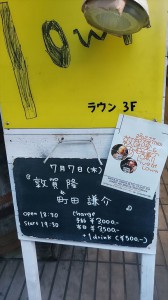 low
ラウン 3F
7月7日(木)
敦賀 隆
町田 謙介
open 18:30
start 19:30
charge
予約 ¥3000-
当日 ¥3500-
+1 drink (¥500-)